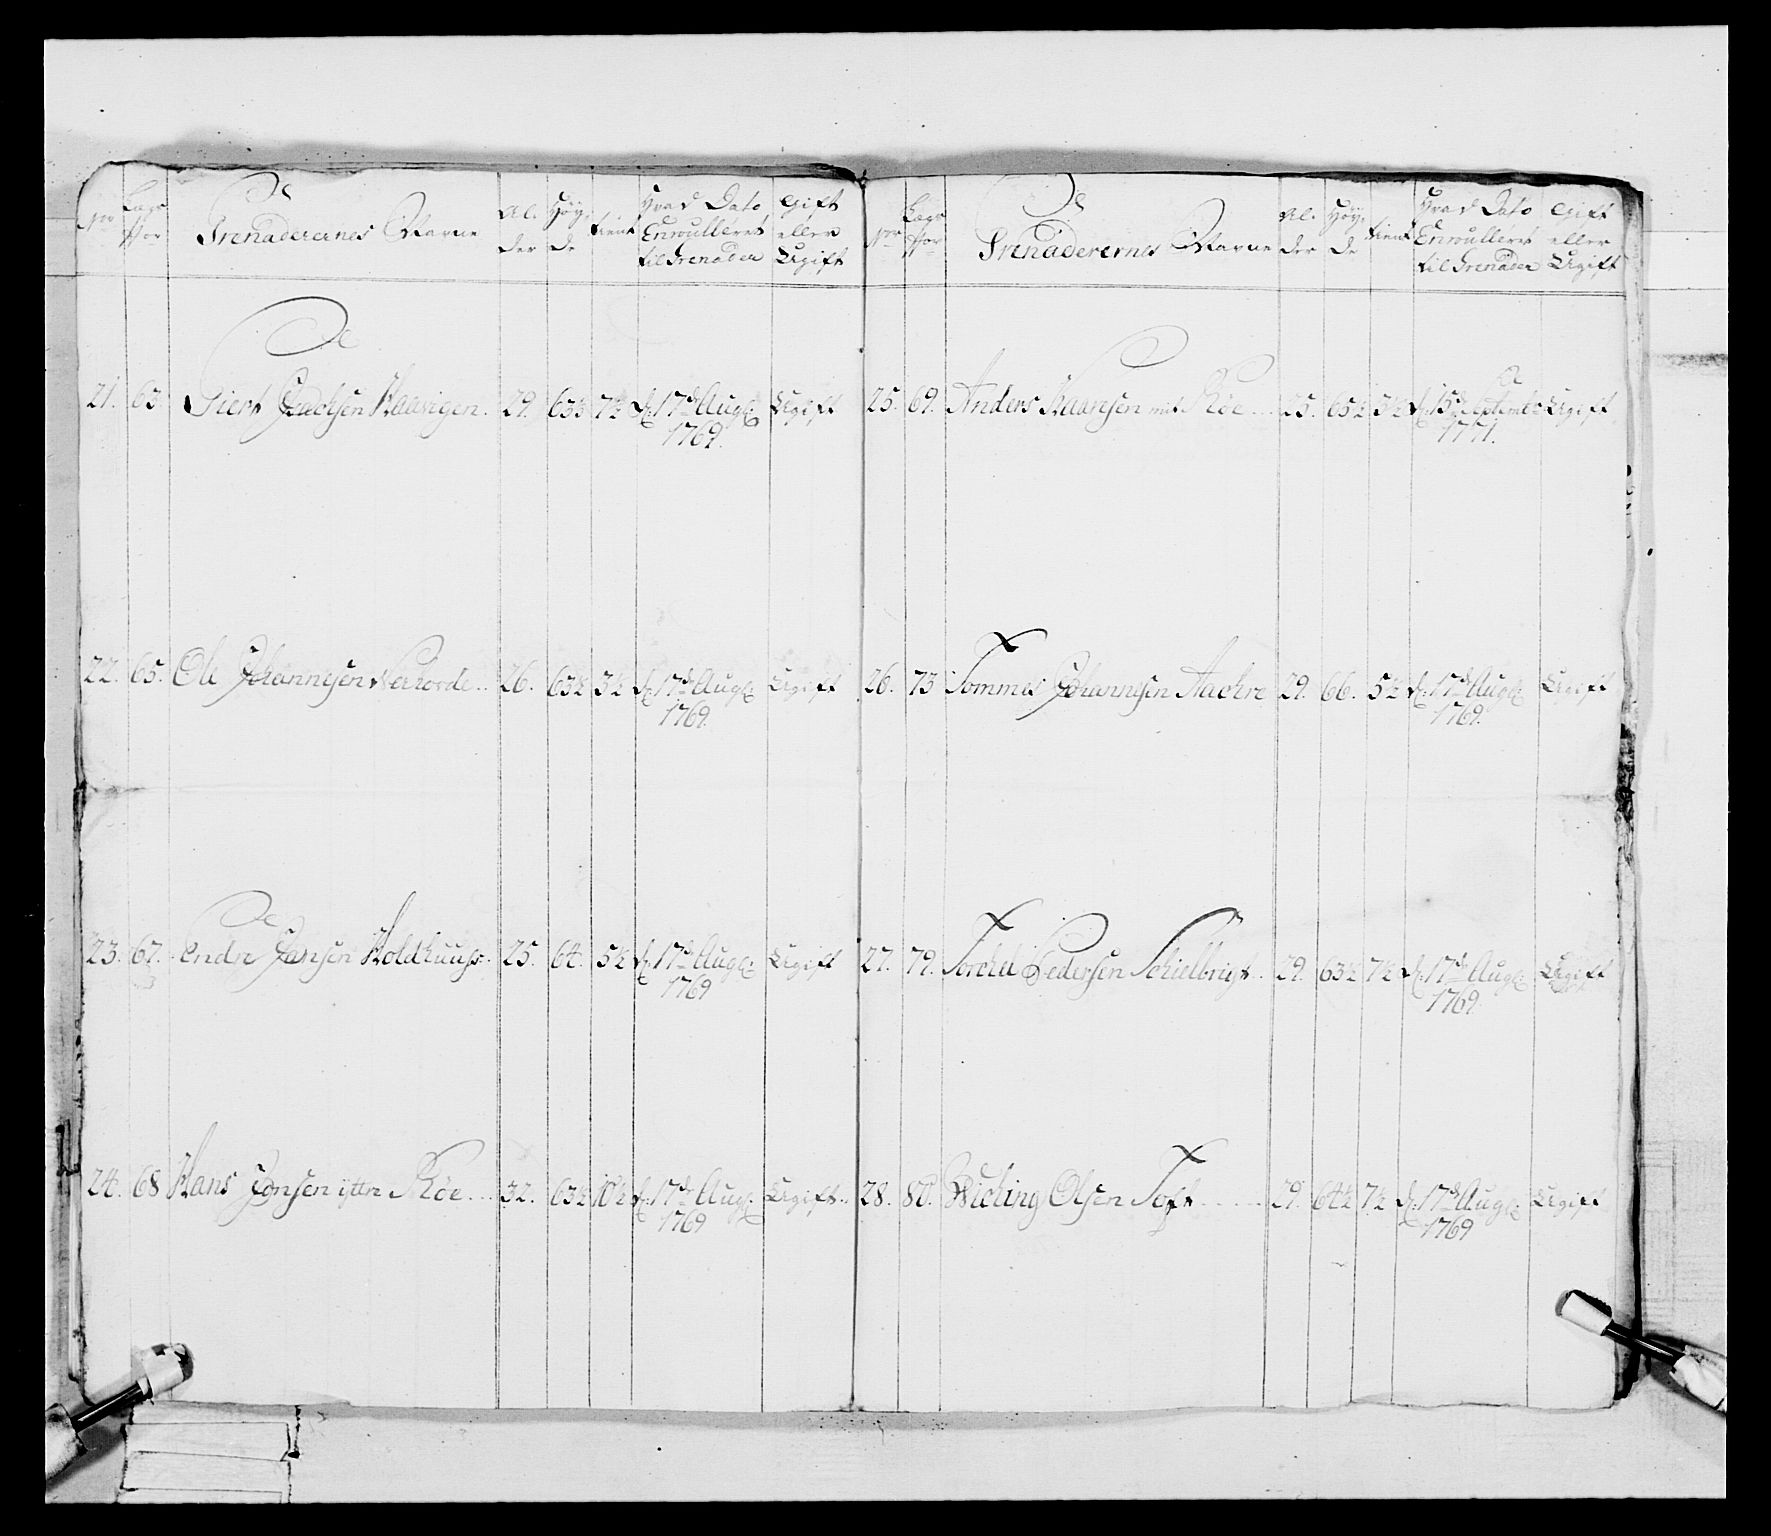 No Lægs Nor Grenaderernes Navne Al: der Höy: de tient Hvad Dato Enroulleret til Grenader Gift eller Ugift
21. 63. Siert Jachsen Haavigen. 29. 63½ 7½ d: 17de Aug: 1769. Ugift
22. 65. Ole Johannesen 26. 63½ 3½ d: 17de Aug: 1769. Ugift
23. 67. Endre Jansen Holdhuus. 25. 64. 5½ d: 17de Aug: 1769 Ugift
24. 68 Hans Jonsen ÿttre Röe 32. 63½ 10½ d: 17de Aug: 1769 Ugift
Nor Lægs Nor Grenaderernes Navne Al: der Höy: de tient Hvad Dato Enroulleret til Grenader Gift eller Ugift
25. 69. Anders Haansen mit Röe 25. 65½ 3½ d: 15de Septembr 1771. Ugift
26. 73 Tommes Johannesen Aachre 29. 66. 5½ d: 17de Aug: 1769. Ugift
27. 79. Torchel Pedersen Schielbrigt. 29. 63½ 7½ d: 17de Aug: 1769. Ugift
28. 80. Wiching Olsen Toft 29. 64½ 7½ d: 17de Aug: 1769 Ugift